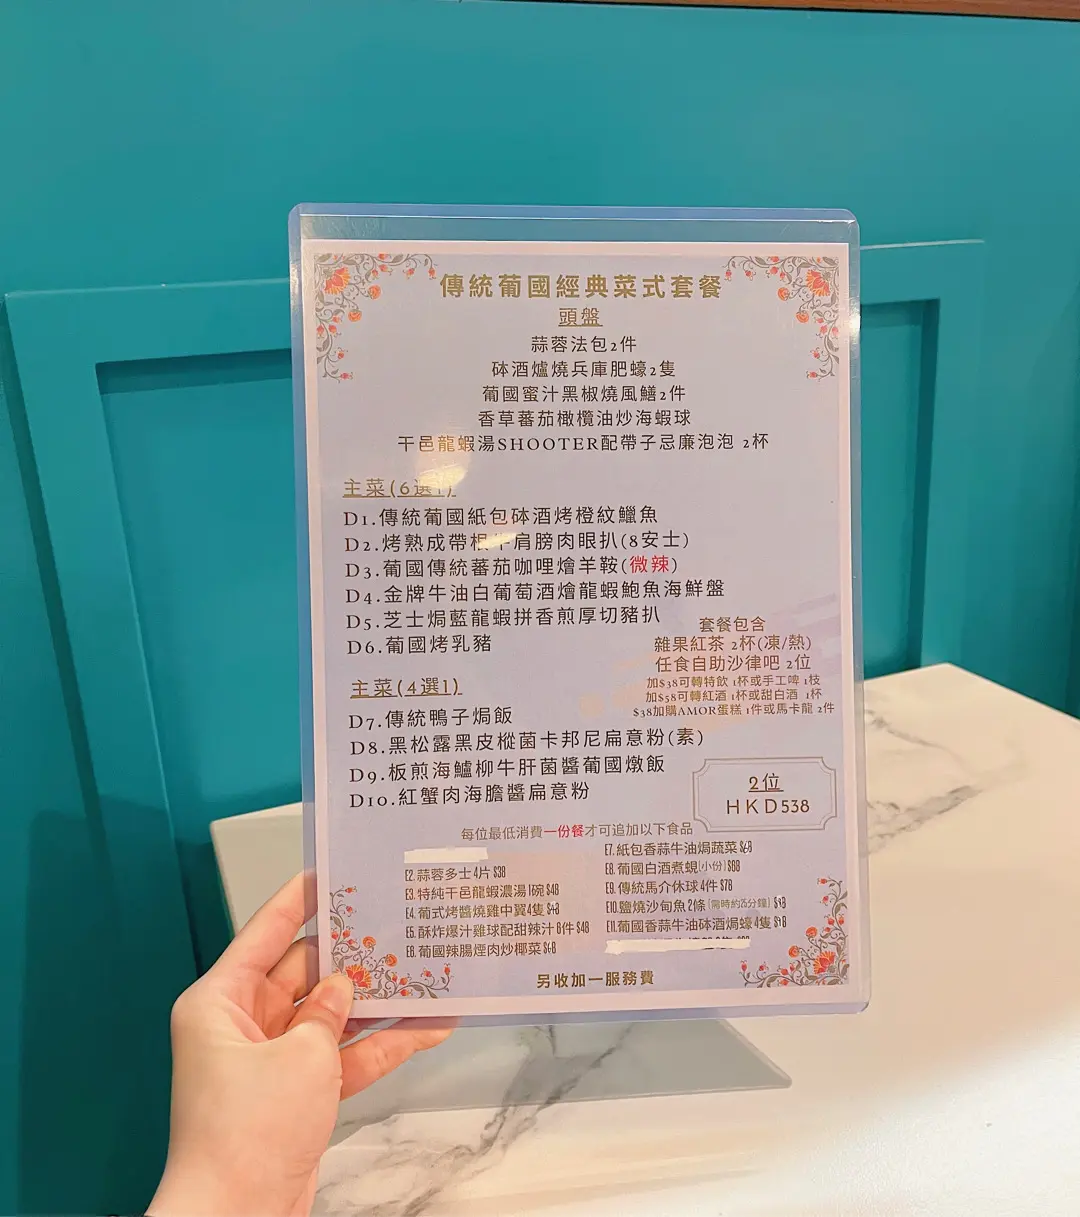 傳統葡國經典菜式套餐
頭盤
蒜蓉法包2件
砵酒爐燒兵庫肥蠔2隻
葡國蜜汁黑椒燒風鱔2件
香草蕃茄橄欖油炒海蝦球
干邑龍蝦湯SHOOTER配帶子忌廉泡泡 2杯
主菜(6選1)
D1.傳統葡國紙包砵酒烤橙紋鱲魚
D2.烤熟成帶根牛肩膀肉眼扒(8安士)
D3.葡國傳統蕃茄咖哩燴羊鞍(微辣)
D4.金牌牛油白葡萄酒燴龍蝦鮑魚海鮮盤
D5.芝士焗藍龍蝦拼香煎厚切豬扒
D6.葡國烤乳豬
套餐包含
雜果紅茶 2杯(凍/熱)
任食自助沙律吧 2位
加$38可轉特飲 1杯或手工啤 1枝
加$58可轉紅酒 1杯或甜白酒 1杯
$38加購AMOR蛋糕 1件或馬卡龍 2件
主菜(4選1)
D7.傳統鴨子焗飯
D8.黑松露黑皮樅菌卡邦尼扁意粉(素)
D9.板煎海鱸柳牛肝菌醬葡國燉飯
D10.紅蟹肉海膽醬扁意粉
2位
HKD538
每位最低消費一份餐才可追加以下食品
E2.蒜蓉多士4片 $38
E3.特純干邑龍蝦濃湯1碗 $48
E4.葡式烤醬燒雞中翼4隻
E5.酥炸爆汁雞球配甜辣汁8件 $48
E6.葡國辣腸煙肉炒椰菜
E7.紙包香蒜牛油焗蔬菜
E8.葡國白酒煮蜆(小份) $88
E9.傳統馬介休球4件 $78
E10.鹽燒沙甸魚2條(需時約25分鐘)
E11.葡國香蒜牛油砵酒焗蠔4隻
另收加一服務費